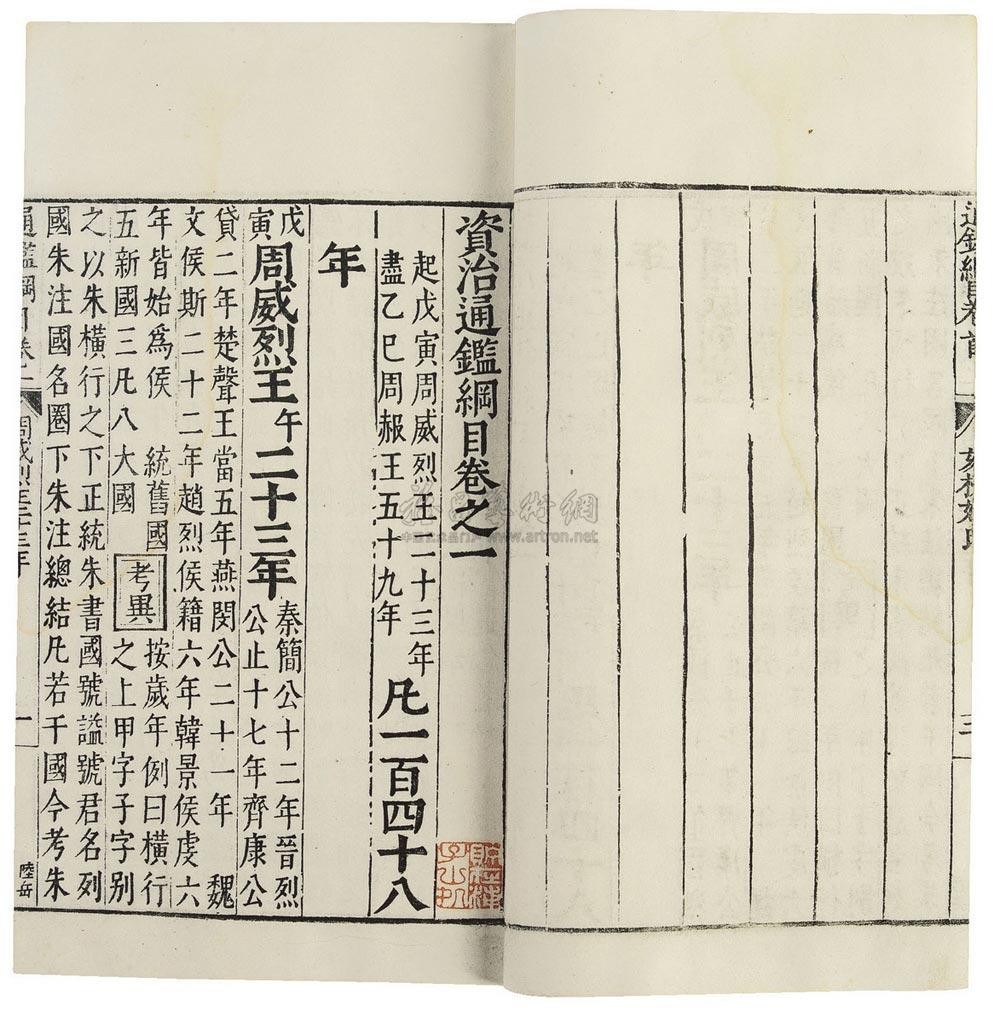 通鑑綱目卷首 姓氏 三
資治通鑑綱目卷之一
起戊寅周威烈王二十三年
盡乙巳周赧王五十九年
凡一百四十八
年
戊寅
周威烈王午二十三年
秦簡公十二年晉烈
公止十七年齊康公
貸二年楚聲王當五年燕閔公二十一年 魏
文侯斯二十二年趙烈侯籍六年韓景侯虔六
年皆始爲侯 統舊國
五新國三凡八大國
考異
按歲年例曰橫行
之上甲字子字別
之以朱橫行之下正統朱書國號謚號君名列
國朱注國名圈下朱注總結凡若干國今考朱
通鑑綱目卷一 周威烈王二十三年 一
陸岳
雅昌藝術網
www.artron.net